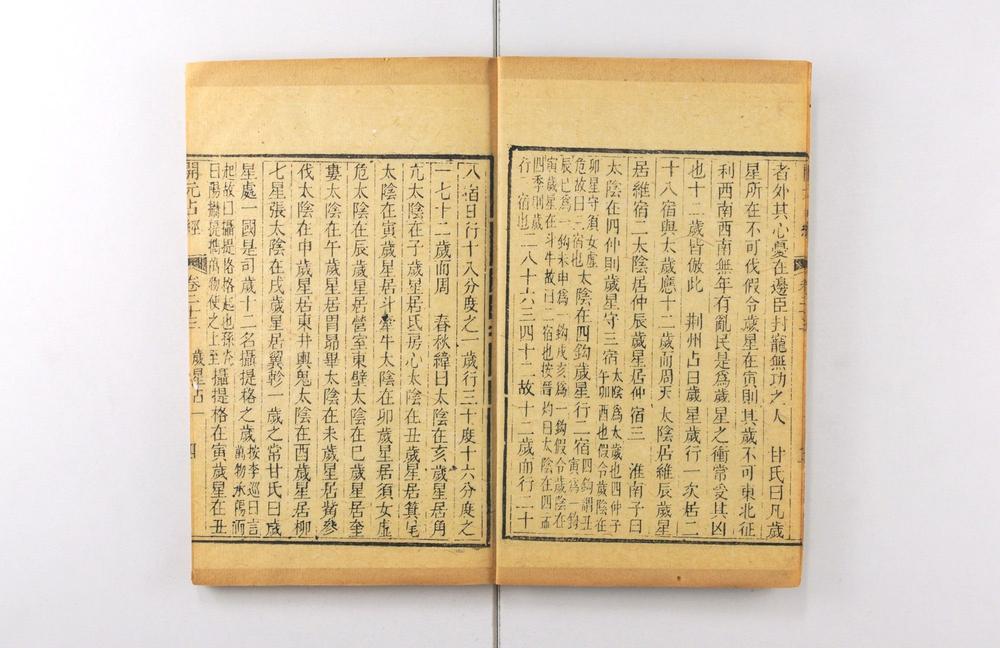 者外其心憂在邊臣封寵無功之人　甘氏曰凡歲
星所在不可伐假令歲星在寅則其歲不可東北征
利西南西南無年有亂民是爲歲星之衝常受其凶
也十二歲皆倣此　荆州占曰歲星歲行一次居二
十八宿與太歲應十二歲而周天　太陰居維辰歲星
居維宿二太陰居仲辰歲星居仲宿三　淮南子曰
太陰在四仲則歲星守三宿太陰爲太歲也四仲子
午卯酉也假令歲陰在
卯星守須女虛
危故曰三宿也太陰在四鈎歲星行二宿四鈎謂丑
寅爲一鈎
辰巳爲一鈎未申爲一鈎戌亥爲一鈎假令歲陰在
寅歲星在斗牛故曰二宿也按晋灼曰太陰在四孟
四季則歲
行二宿也二八十六三四十二故十二歲而行二十
八宿日行十八分度之一歲行三十度十六分度之
一七十二歲而周　春秋緯曰太陰在亥歲星居角
亢太陰在子歲星居氐房心太陰在丑歲星居箕尾
太陰在寅歲星居斗牽牛太陰在卯歲星居須女虛
危太陰在辰歲星居營室東壁太陰在巳歲星居奎
婁太陰在午歲星居胃昴畢太陰在未歲星居觜參
伐太陰在申歲星居東井輿鬼太陰在酉歲星居柳
七星張太陰在戌歲星居翼軫一歲之常甘氏曰歲
星處一國是司歲十二名攝提格之歲按李巡曰言
萬物承陽而
起故曰攝提格格起也孫炎
曰陽攝提攜萬物使之上至攝提格在寅歲星在丑
開元占經　卷二十三　歲星占一　四